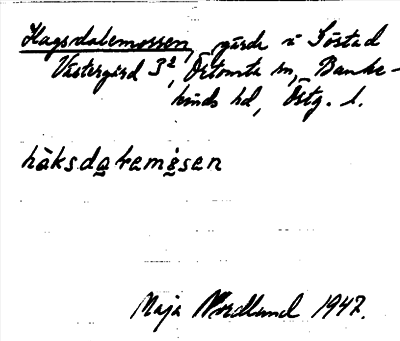 Hagsdalemossen, gärde i Söstad
Västergård 3², Örtomta sn, Banke-
kinds hd, Östg. l.
håksdalemåsen
Maja Nordlund 1947.